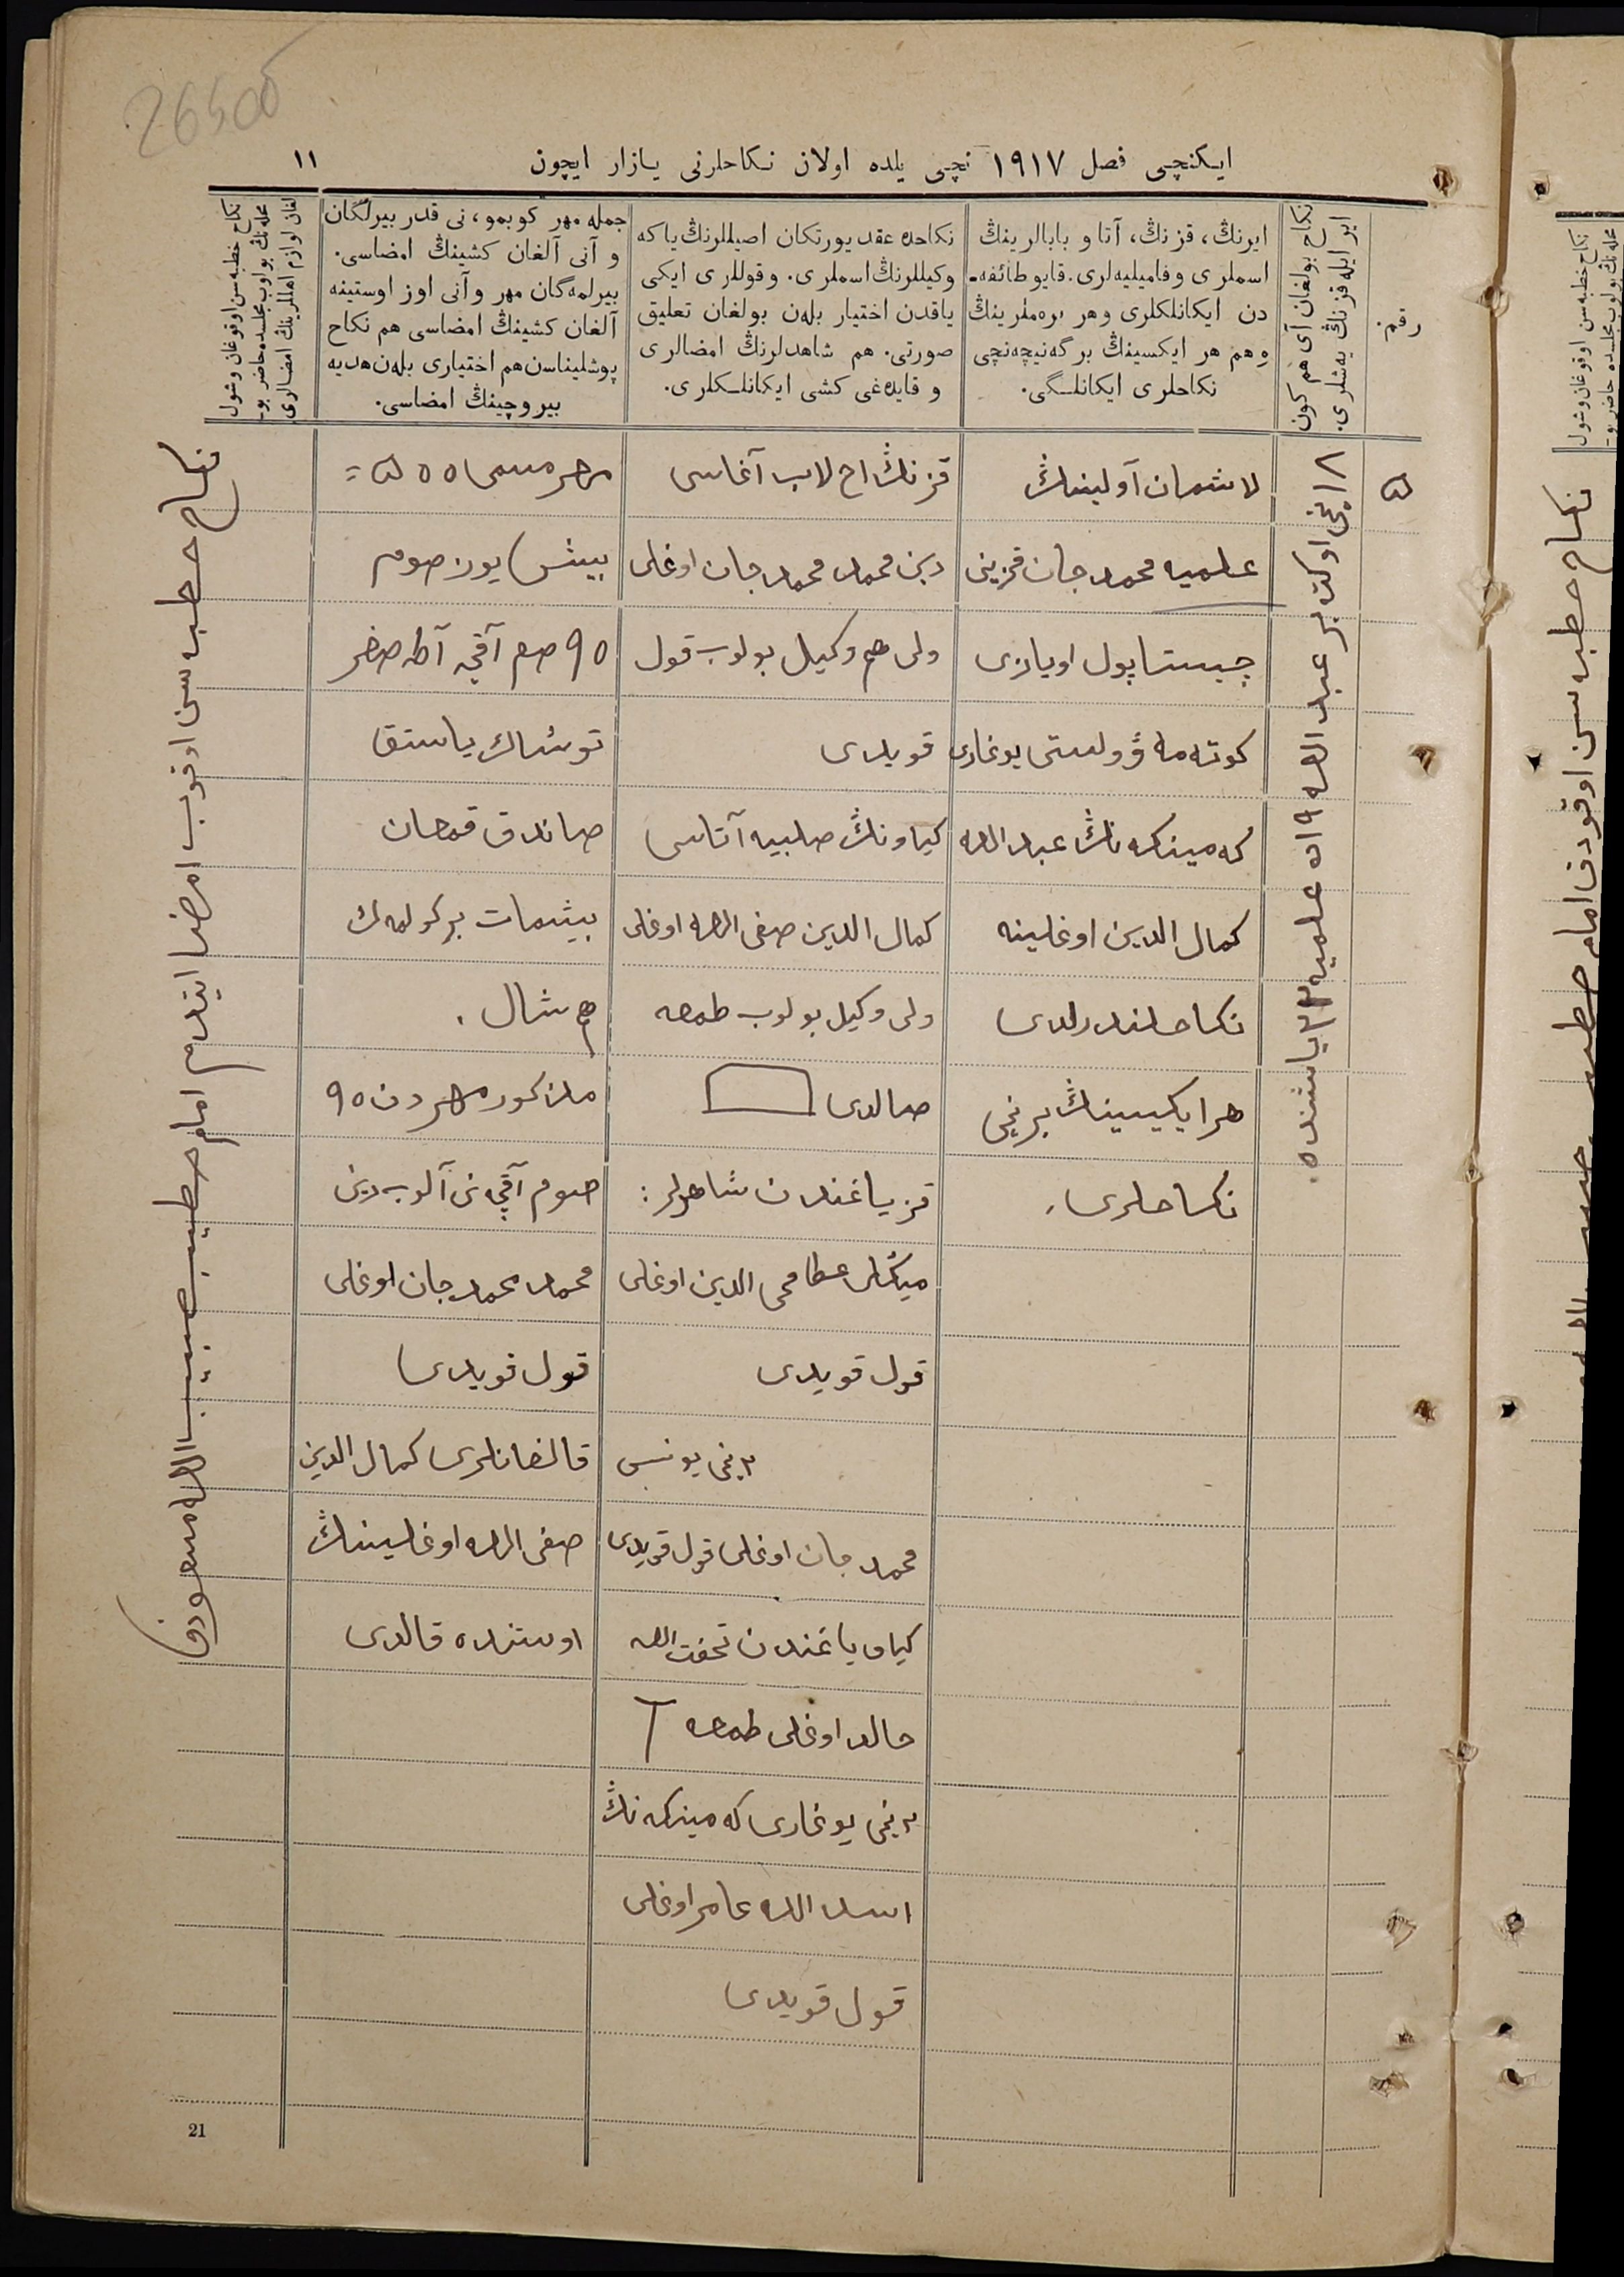 26500
ایکنچی فصل ۱۹۱۷ نچی یلده اولان نکاحلرنی یازار ایچون
۱۱
رقم
نکاح بولغان آی هم کون
ایر ایله قزنڭ یه‌شلری.
ایرنڭ، قزنڭ، آتا و بابالرینڭ
اسملری و فامیلیه‌لری. قایو طائفه‌ـ
دن ایکانلکلری و هر بره‌ملرینڭ
هم هر ایکسینڭ برگه‌نیچه‌نچی
نکاحلری ایکانلـگی.
نکاحده عقد یورتکان اصیللرنڭ یا که
وکیللرنڭ اسملری. وقوللری ایکی
یاقدن اختیار بلەن بولغان تعلیق
صورتی. هم شاهدلرنڭ امضالری
و قایده‌غی کشی ایکانلـکلری.
جمله مهر کوبمو، نی قدر بیرلگان
و آنی آلغان کشینڭ امضاسی.
بیرلمه‌گان مهر وآنی اوز اوستینه
آلغان کشینڭ امضاسی هم نکاح
پوشلیناسن هم اختیاری بلەن هدیه
بیروچینڭ امضاسی.
نکاح خطبه سن اوقوغان وشول
محله‌نڭ بولوب مجلسده حاضر بو‌ـ
لغان لوازم اهللرینڭ امضالری
۵
۱۸نچی اوکتەبر عبد الله ۱۹ده علمیه ۲۲ یاشنده.
لاشمان آولینڭ
علمیه محمد جان قزینی
چیستاپول اویازی
کوته‌مه ۋولستی یوغاری
که‌مینکه نڭ عبد الله
کمال الدین اوغلینه
نکاحلندرلدی
هر ایکیسینڭ برنچی
نکاحلری.
قزنڭ اح لاب آغاسی
دین محمد محمد جان اوغلی
ولی هم وکیل بولوب قول
قویدی
کیاونڭ صلبیه آتاسی
کمال الدین صفی الله اوغلی
ولی وکیل بولوب طمغه
صالدی
قز یاغندن شاهدلر:
عطا محی الدین اوغلی
قول قویدی
۲ نچی یونس
محمد جان اوغلی قول قویدی
کیاو یاغندن تحفت الله
خالد اوغلی طمغه T
۲ نچی یوغاری که‌مینکه نڭ
اسد الله عامر اوغلی
قول قویدی
مهر مسمی ۵۰۰ =
بیش یوز صوم
۹۵ صوم آقچه
توشاك یاستق
صاندق
بیشمات بر کولمەك
هم شال.
مذکور مهردن ۹۵
صوم آقچه نی آلوب دین
محمد محمد جان اوغلی
قول قویدی
قالغانلری کمال الدین
صفی الله اوغلینڭ
اوستنده قالدی
نکاح خطبه سن اوقوب امضا ایتدم امام خطیب حبیب الله مسعودف
21
نکاح خطبه سن اوقوغان وشول
نکاح خطبه سن اوقودف امام خطیب